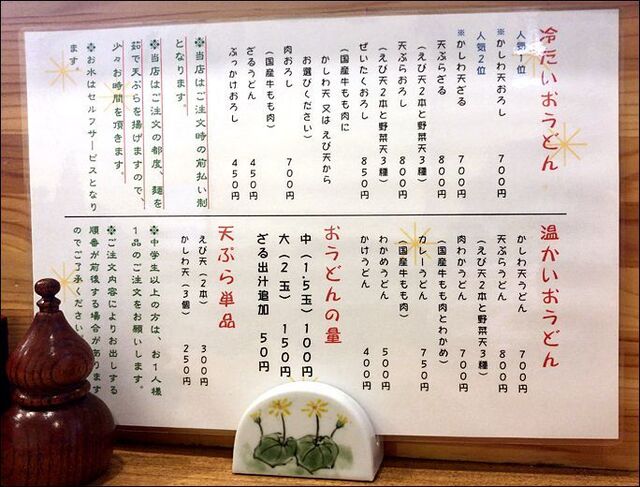 冷たいおうどん
人気1位
※かしわ天おろし 700円
人気2位
※かしわ天ざる 700円
天ぷらざる 800円
(えび天2本と野菜天3種)
天ぷらおろし 800円
(えび天2本と野菜天3種)
ぜいたくおろし 850円
(国産牛もも肉に
かしわ天 又は えび天から
お選びください)
肉おろし 700円
(国産牛もも肉)
ざるうどん 450円
ぶっかけおろし 450円
※当店はご注文時の前払い制
となります。
※当店はご注文の都度、麺を
茹で天ぷらを揚げますので、
少々お時間を頂きます。
※お水はセルフサービスとなり
ます。
温かいおうどん
かしわ天うどん 700円
天ぷらうどん 800円
(えび天2本と野菜天3種)
肉わかめうどん 700円
(国産牛もも肉とわかめ)
カレーうどん 750円
(国産牛もも肉)
わかめうどん 500円
かけうどん 400円
おうどんの量
中(1.5玉) 100円
大(2玉) 150円
ざる出汁追加 50円
天ぷら単品
えび天(2本) 300円
かしわ天(3個) 250円
※中学生以上の方は、お1人様
1品のご注文をお願いします。
※ご注文内容によりお出しする
順番が前後する場合があります
のでご了承ください